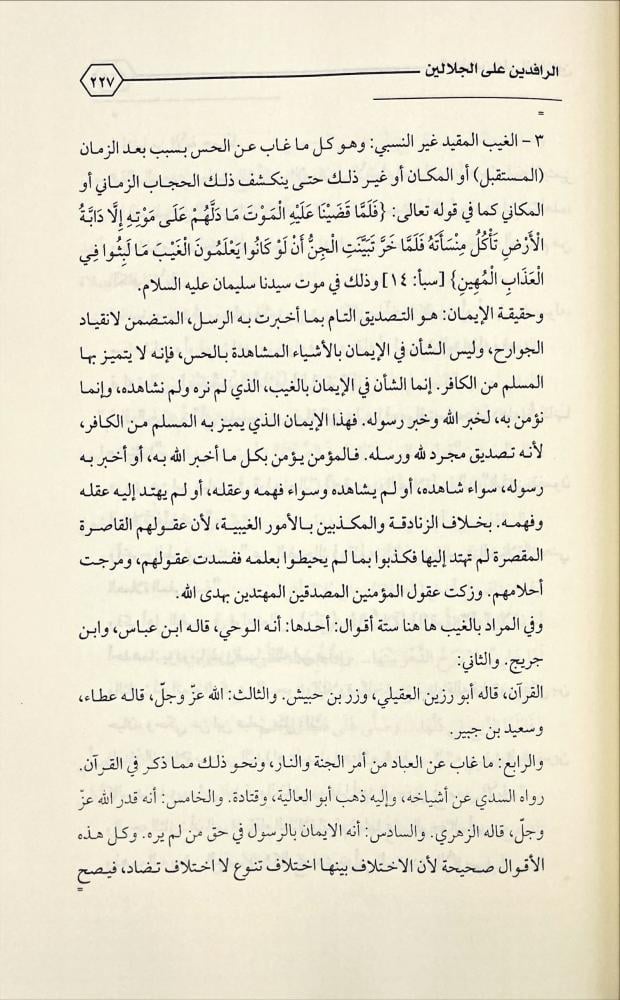 الرافدين على الجلالين
٢٢٧
=
٣ - الغيب المقيد غير النسبي: وهو كل ما غاب عن الحس بسبب بعد الزمان
(المستقبل) أو المكان أو غير ذلك حتى ينكشف ذلك الحجاب الزماني أو
المكاني كما في قوله تعالى: {فَلَمَّا قَضَيْنَا عَلَيْهِ الْمَوْتَ مَا دَلَّهُمْ عَلَى مَوْتِهِ إِلَّا دَابَّةُ
الْأَرْضِ تَأْكُلُ مِنْسَأَتَهُ فَلَمَّا خَرَّ تَبَيَّنَتِ الْجِنُّ أَنْ لَوْ كَانُوا يَعْلَمُونَ الْغَيْبَ مَا لَبِثُوا فِي
الْعَذَابِ الْمُهِينِ} [سبأ: ١٤] وذلك في موت سيدنا سليمان عليه السلام.
وحقيقة الإيمان: هو التصديق التام بما أخبرت به الرسل، المتضمن لانقياد
الجوارح، وليس الشأن في الإيمان بالأشياء المشاهدة بالحس، فإنه لا يتميز بها
المسلم من الكافر. إنما الشأن في الإيمان بالغيب، الذي لم نره ولم نشاهده، وإنما
نؤمن به، لخبر الله وخبر رسوله. فهذا الإيمان الذي يميز به المسلم من الكافر،
لأنه تصديق مجرد لله ورسله. فالمؤمن يؤمن بكل ما أخبر الله به، أو أخبر به
رسوله، سواء شاهده، أو لم يشاهده وسواء فهمه وعقله، أو لم يهتد إليه عقله
وفهمه. بخلاف الزنادقة والمكذبين بالأمور الغيبية، لأن عقولهم القاصرة
المقصرة لم تهتد إليها فكذبوا بما لم يحيطوا بعلمه ففسدت عقولهم، ومرجت
أحلامهم. وزكت عقول المؤمنين المصدقين المهتدين بهدى الله.
وفي المراد بالغيب ها هنا ستة أقوال: أحدها: أنه الوحي، قاله ابن عباس، وابن
جريج. والثاني:
القرآن، قاله أبو رزين العقيلي، وزر بن حبيش. والثالث: الله عزّ وجلّ، قاله عطاء،
وسعيد بن جبير.
والرابع: ما غاب عن العباد من أمر الجنة والنار، ونحو ذلك مما ذكر في القرآن.
رواه السدي عن أشياخه، وإليه ذهب أبو العالية، وقتادة. والخامس: أنه قدر الله عزّ
وجلّ، قاله الزهري. والسادس: أنه الايمان بالرسول في حق من لم يره. وكل هذه
الأقوال صحيحة لأن الاختلاف بينها اختلاف تنوع لا اختلاف تضاد، فيصح
=